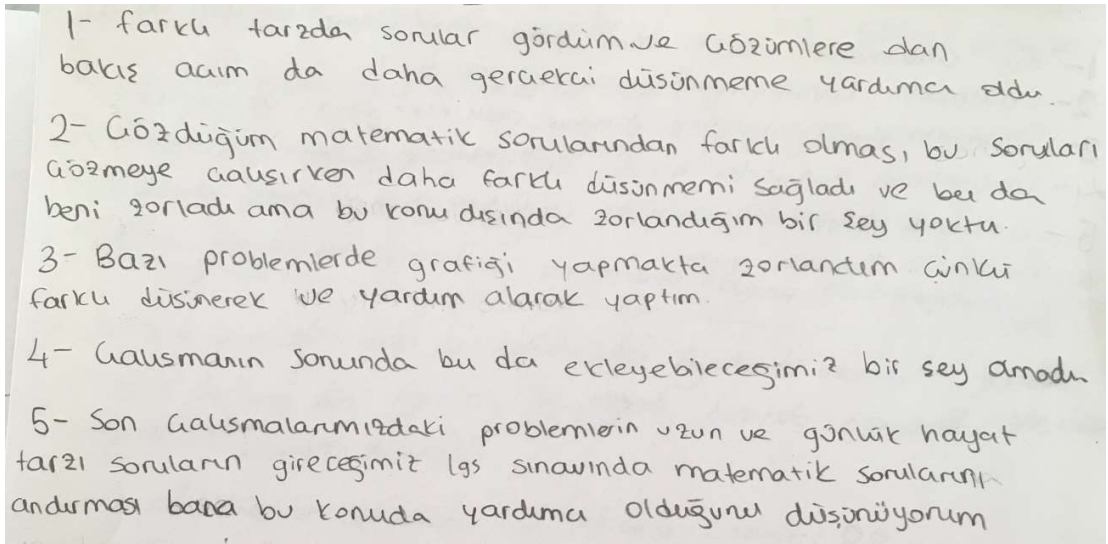 1- farklı tarzda sorular gördüm ve çözümlere olan
bakış açım da daha gerçekçi düşünmeme yardımcı oldu.
2- Çözdüğüm matematik sorularından farklı olması, bu soruları
çözmeye çalışırken daha farklı düşünmemi sağladı ve bu da
beni zorladı ama bu konu dışında zorlandığım bir şey yoktu.
3- Bazı problemlerde grafiği yapmakta zorlandım çünkü
farklı düşünerek ve yardım alarak yaptım.
4- Çalışmanın sonunda bu da ekleyebileceğimiz bir şey olmadı
5- Son çalışmalarımızdaki problemlerin uzun ve günlük hayat
tarzı soruların gireceğimiz lgs sınavında matematik sorularını
andırması bana bu konuda yardımcı olduğunu düşünüyorum